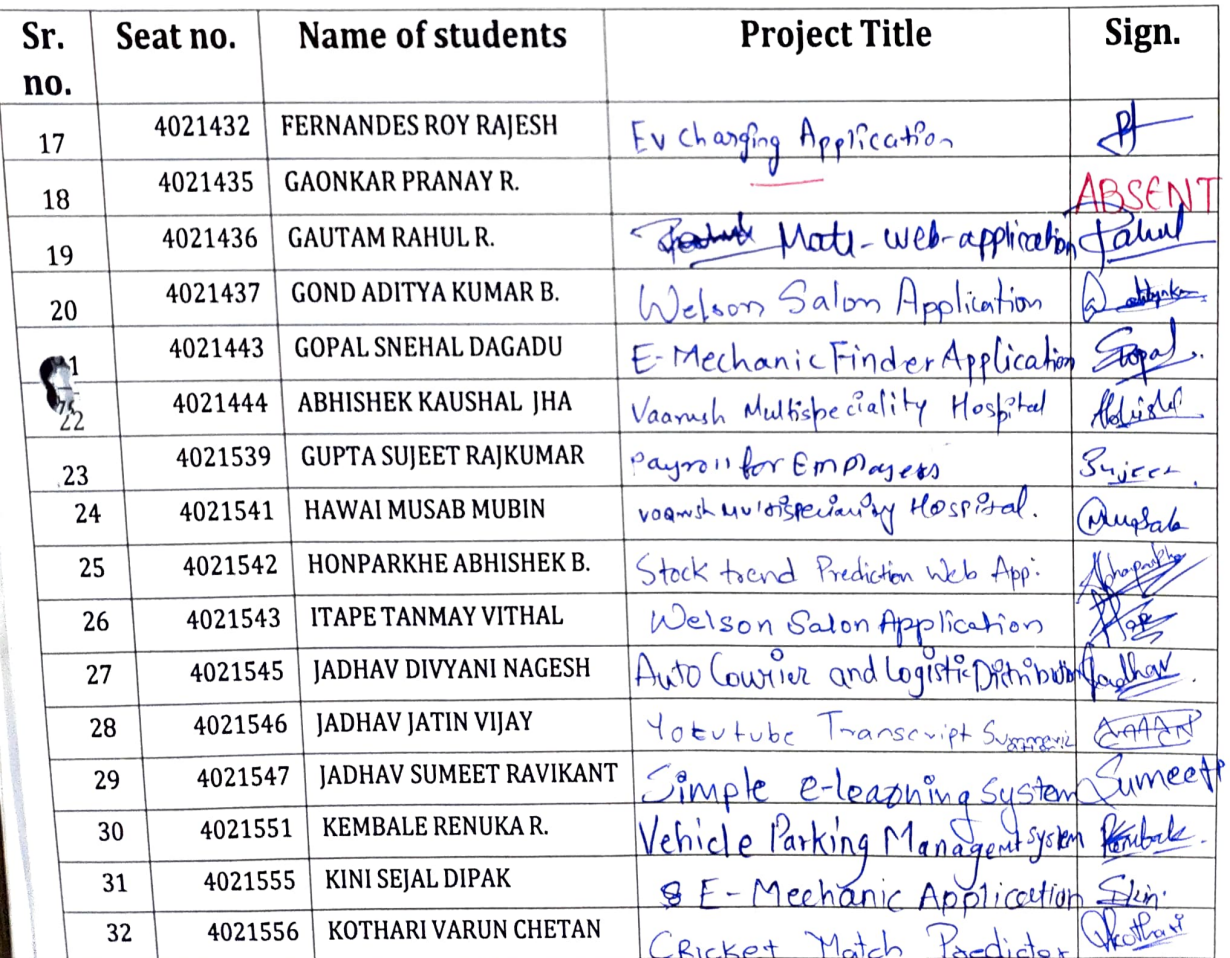 Sr. no. Seat no. Name of students Project Title Sign.
17 4021432 FERNANDES ROY RAJESH Ev Charging Application
18 4021435 GAONKAR PRANAY R. — ABSENT
19 4021436 GAUTAM RAHUL R. Mate-web-application Rahul
20 4021437 GOND ADITYA KUMAR B. Welson Salon Application
1 4021443 GOPAL SNEHAL DAGADU E-Mechanic Finder Application Gopal.
22 4021444 ABHISHEK KAUSHAL JHA Vaarush Multispeciality Hospital Abhishek
23 4021539 GUPTA SUJEET RAJKUMAR Payroll for Employees Sujeet
24 4021541 HAWAI MUSAB MUBIN Vaarush Multispeciality Hospital.
25 4021542 HONPARKHE ABHISHEK B. Stock trend Prediction Web App.
26 4021543 ITAPE TANMAY VITHAL Welson Salon Application
27 4021545 JADHAV DIVYANI NAGESH Auto Courier and Logistic Distribution Jadhav.
28 4021546 JADHAV JATIN VIJAY Yotutube Transcript Summeriz
29 4021547 JADHAV SUMEET RAVIKANT Simple e-learning system Sumeet
30 4021551 KEMBALE RENUKA R. Vehicle Parking Managemt system
31 4021555 KINI SEJAL DIPAK E-Mechanic Application Skin.
32 4021556 KOTHARI VARUN CHETAN Cricket Match Predictor Vkothari